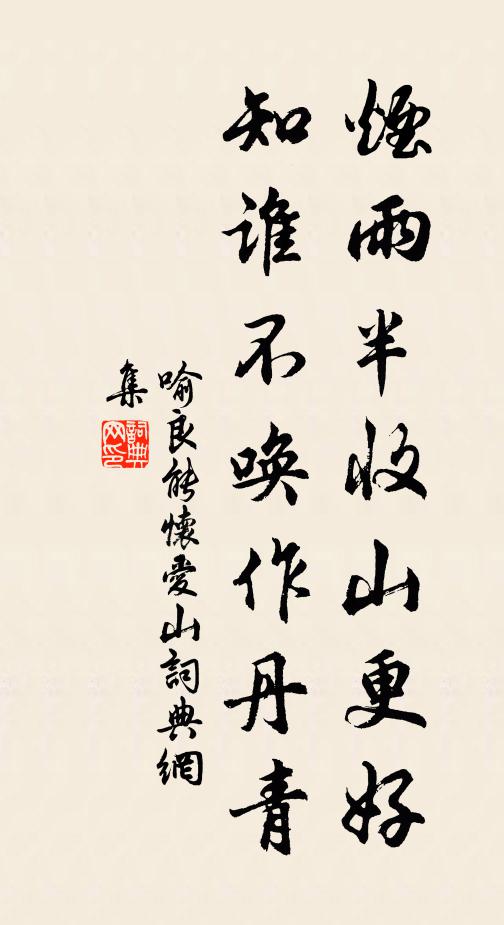 煙雨半收山更好
知誰不喚作丹青
喻良能懷愛山詞典網
集
詞典
网印